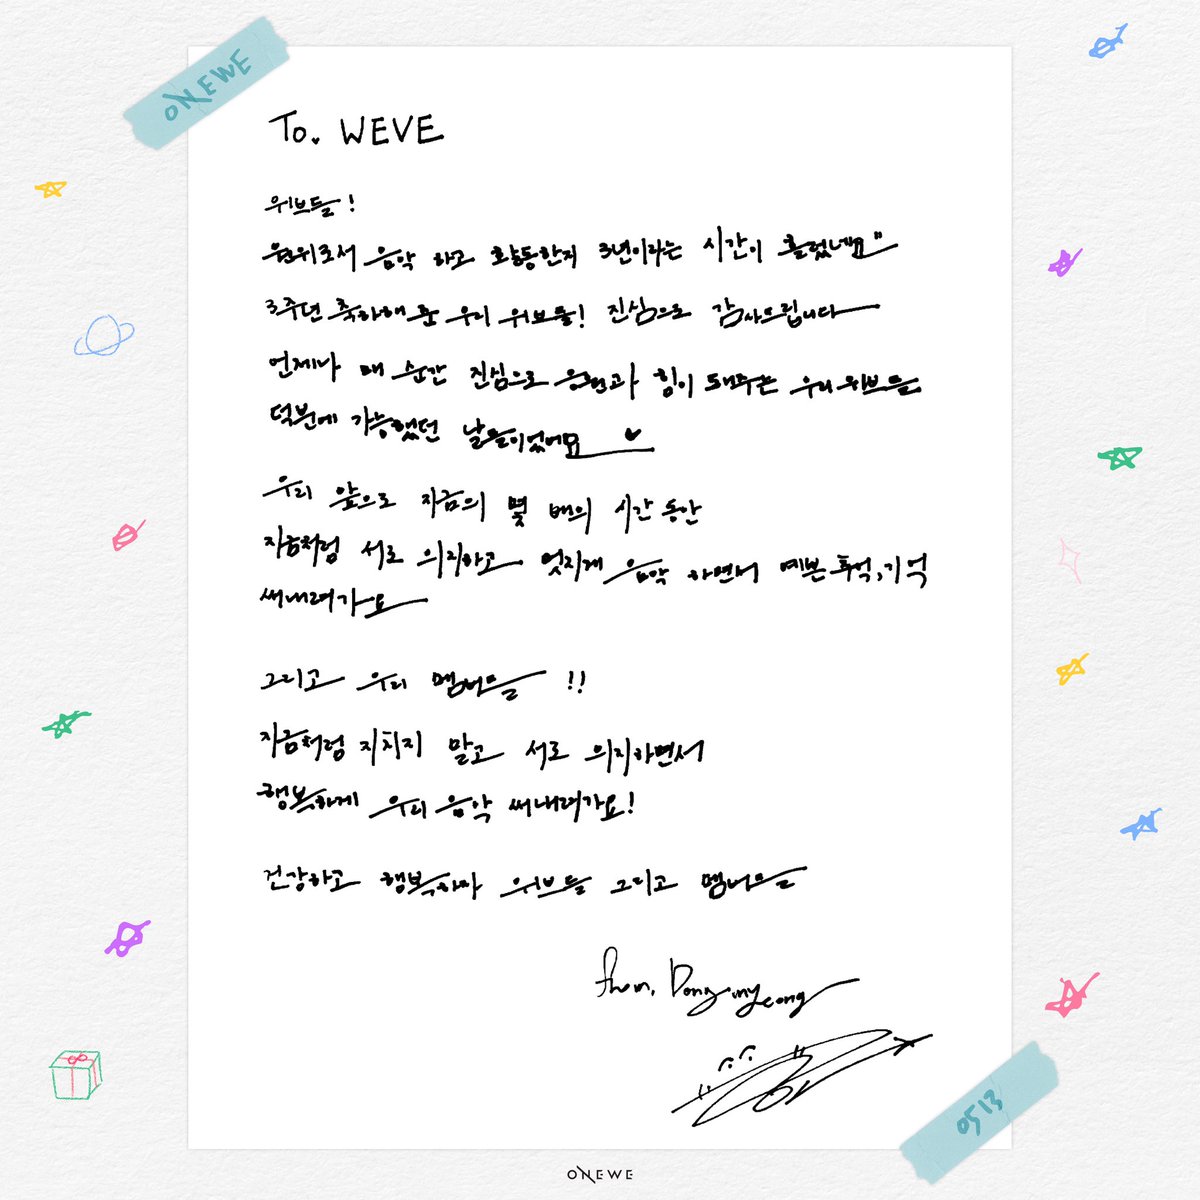 ONEWE
To. WEVE
위브들!
원위로서 음악 하고 활동한지 3년이라는 시간이 흘렀네요"
3주년 축하해 준 우리 위브들! 진심으로 감사드립니다
언제나 매 순간 진심으로 응원과 힘이 돼주는 우리 위브들
덕분에 가능했던 날들이었어요
우리 앞으로 지금의 몇 배의 시간 동안
지금처럼 서로 의지하고 멋지게 음악 하면서 예쁜 추억, 기억
써내려가요
그리고 우리 멤버들 !!
지금처럼 지치지 말고 서로 의지하면서
행복하게 우리 음악 써내려가요!
건강하고 행복하자 위브들 그리고 멤버들
from. Dongmyeong
0513
ONEWE